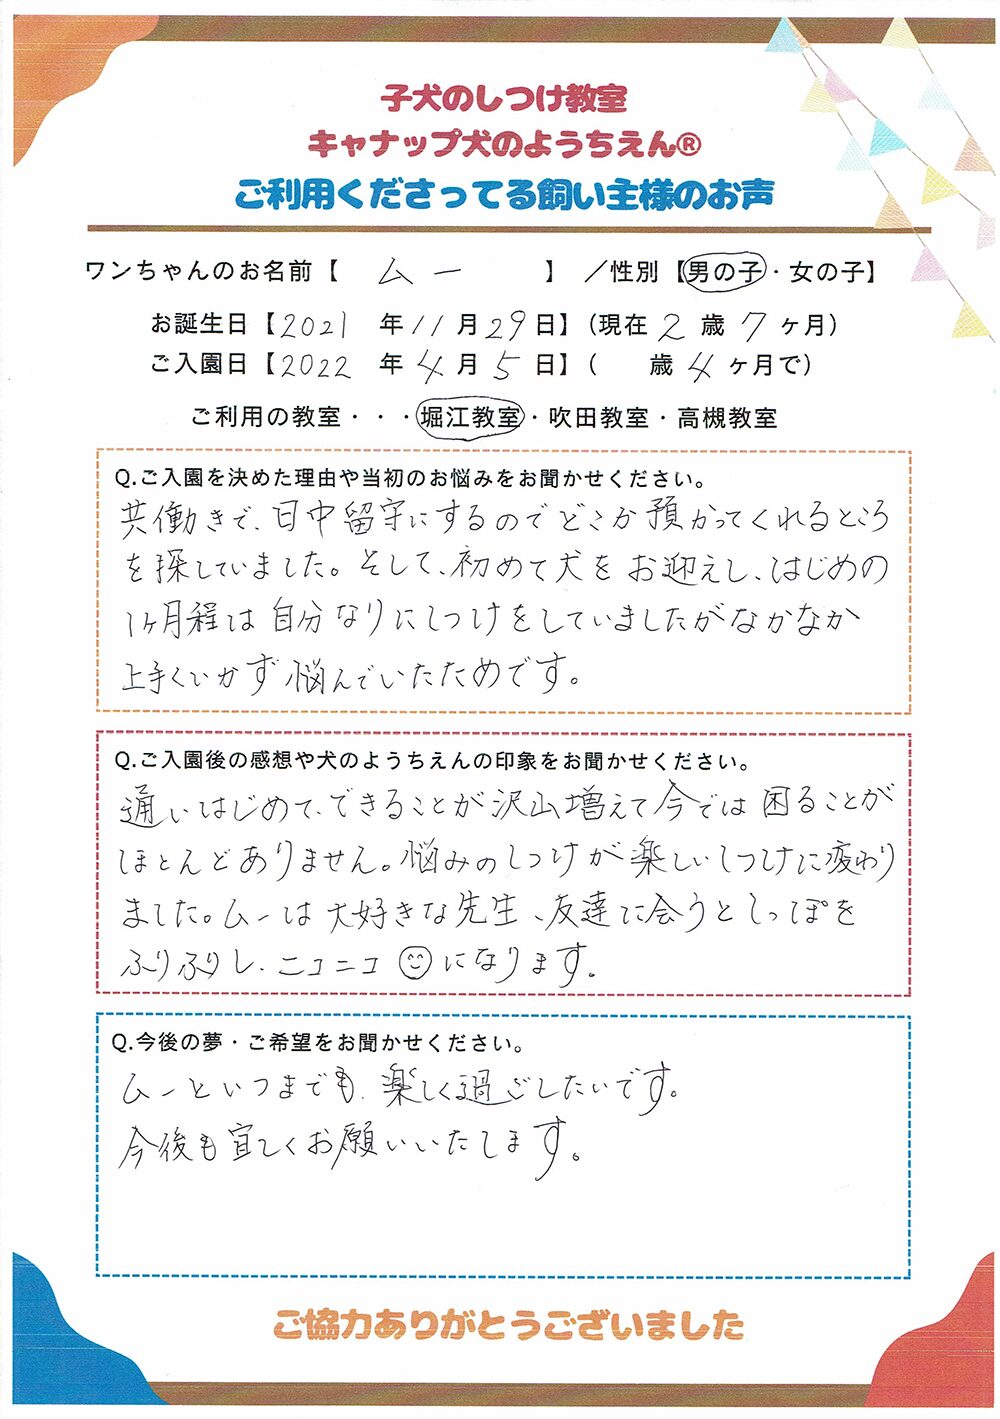 子犬のしつけ教室
キャナップ犬のようちえん®
ご利用くださってる飼い主様のお声
ワンちゃんのお名前【 ムー 】 ／性別【男の子・女の子】
お誕生日【2021 年 11 月 29 日】（現在 2 歳 7 ヶ月）
ご入園日【2022 年 4 月 5 日】（ 歳 4 ヶ月で）
ご利用の教室・・・堀江教室・吹田教室・高槻教室
Q.ご入園を決めた理由や当初のお悩みをお聞かせください。
共働きで、日中留守にするのでどこか預かってくれるところ
を探していました。そして、初めて犬をお迎えし、はじめの
1ヶ月程は自分なりにしつけをしていましたがなかなか
上手くいかず悩んでいたためです。
Q.ご入園後の感想や犬のようちえんの印象をお聞かせください。
通いはじめて、できることが沢山増えて今では困ることが
ほとんどありません。悩みのしつけが楽しいしつけに変わり
ました。ムーは大好きな先生、友達に会うとしっぽを
ふりふりし、ニコニコ☺になります。
Q.今後の夢・ご希望をお聞かせください。
ムーといつまでも、楽しく過ごしたいです。
今後も宜しくお願いいたします。
ご協力ありがとうございました